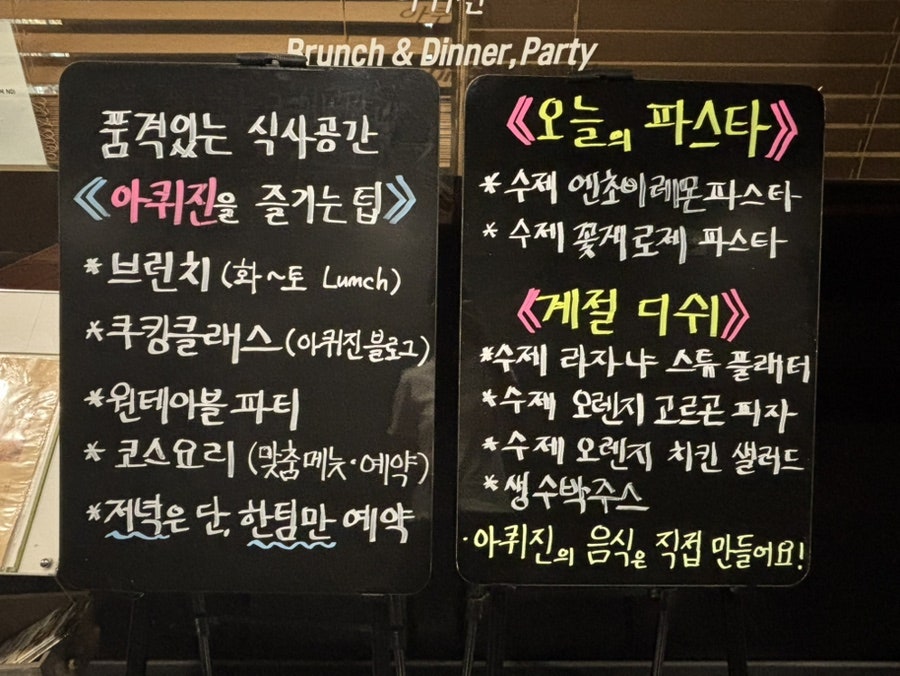 Brunch & Dinner, Party
품격있는 식사공간
《아퀴진을 즐기는 팁》
*브런치 (화~토 Lunch)
*쿠킹클래스 (아퀴진블로그)
*원테이블파티
*코스요리 (맞춤메뉴·예약)
*저녁은 단, 한팀만 예약
《오늘의 파스타》
*수제 엔초비레몬파스타
*수제 꽃게로제 파스타
《계절 디쉬》
*수제 라자냐 스튜 플래터
*수제 오렌지 고르곤 피자
*수제 오렌지 치킨 샐러드
*생수박주스
·아퀴진의 음식은 직접 만들어요!